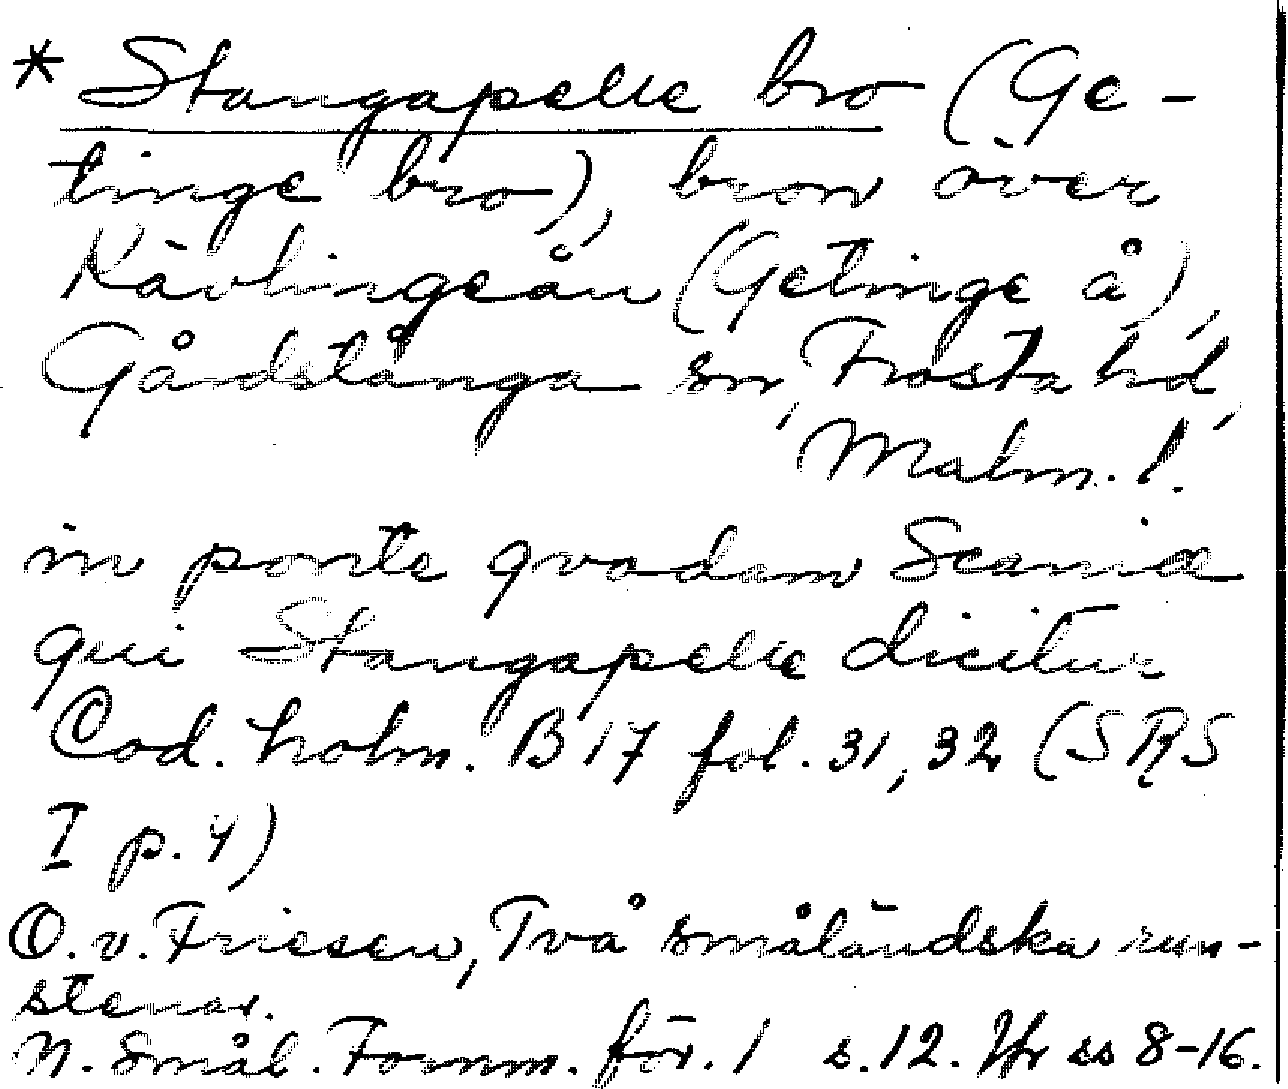 * Stangapelle bro (Ge-
tinge bro), bron över
Kävlingeån (Getinge å),
Gårdstånga sn, Frosta hd,
Malm. l.
in ponte qvodam Scaniæ
qui Stangapelle dicitur
Cod. holm. B 17 fol. 31, 32 (SRS
I p. 4)
O. v. Friesen, Två småländska run-
stenar.
N. Smål. Fornm. för. 1 s. 12. Jfr ss 8-16.